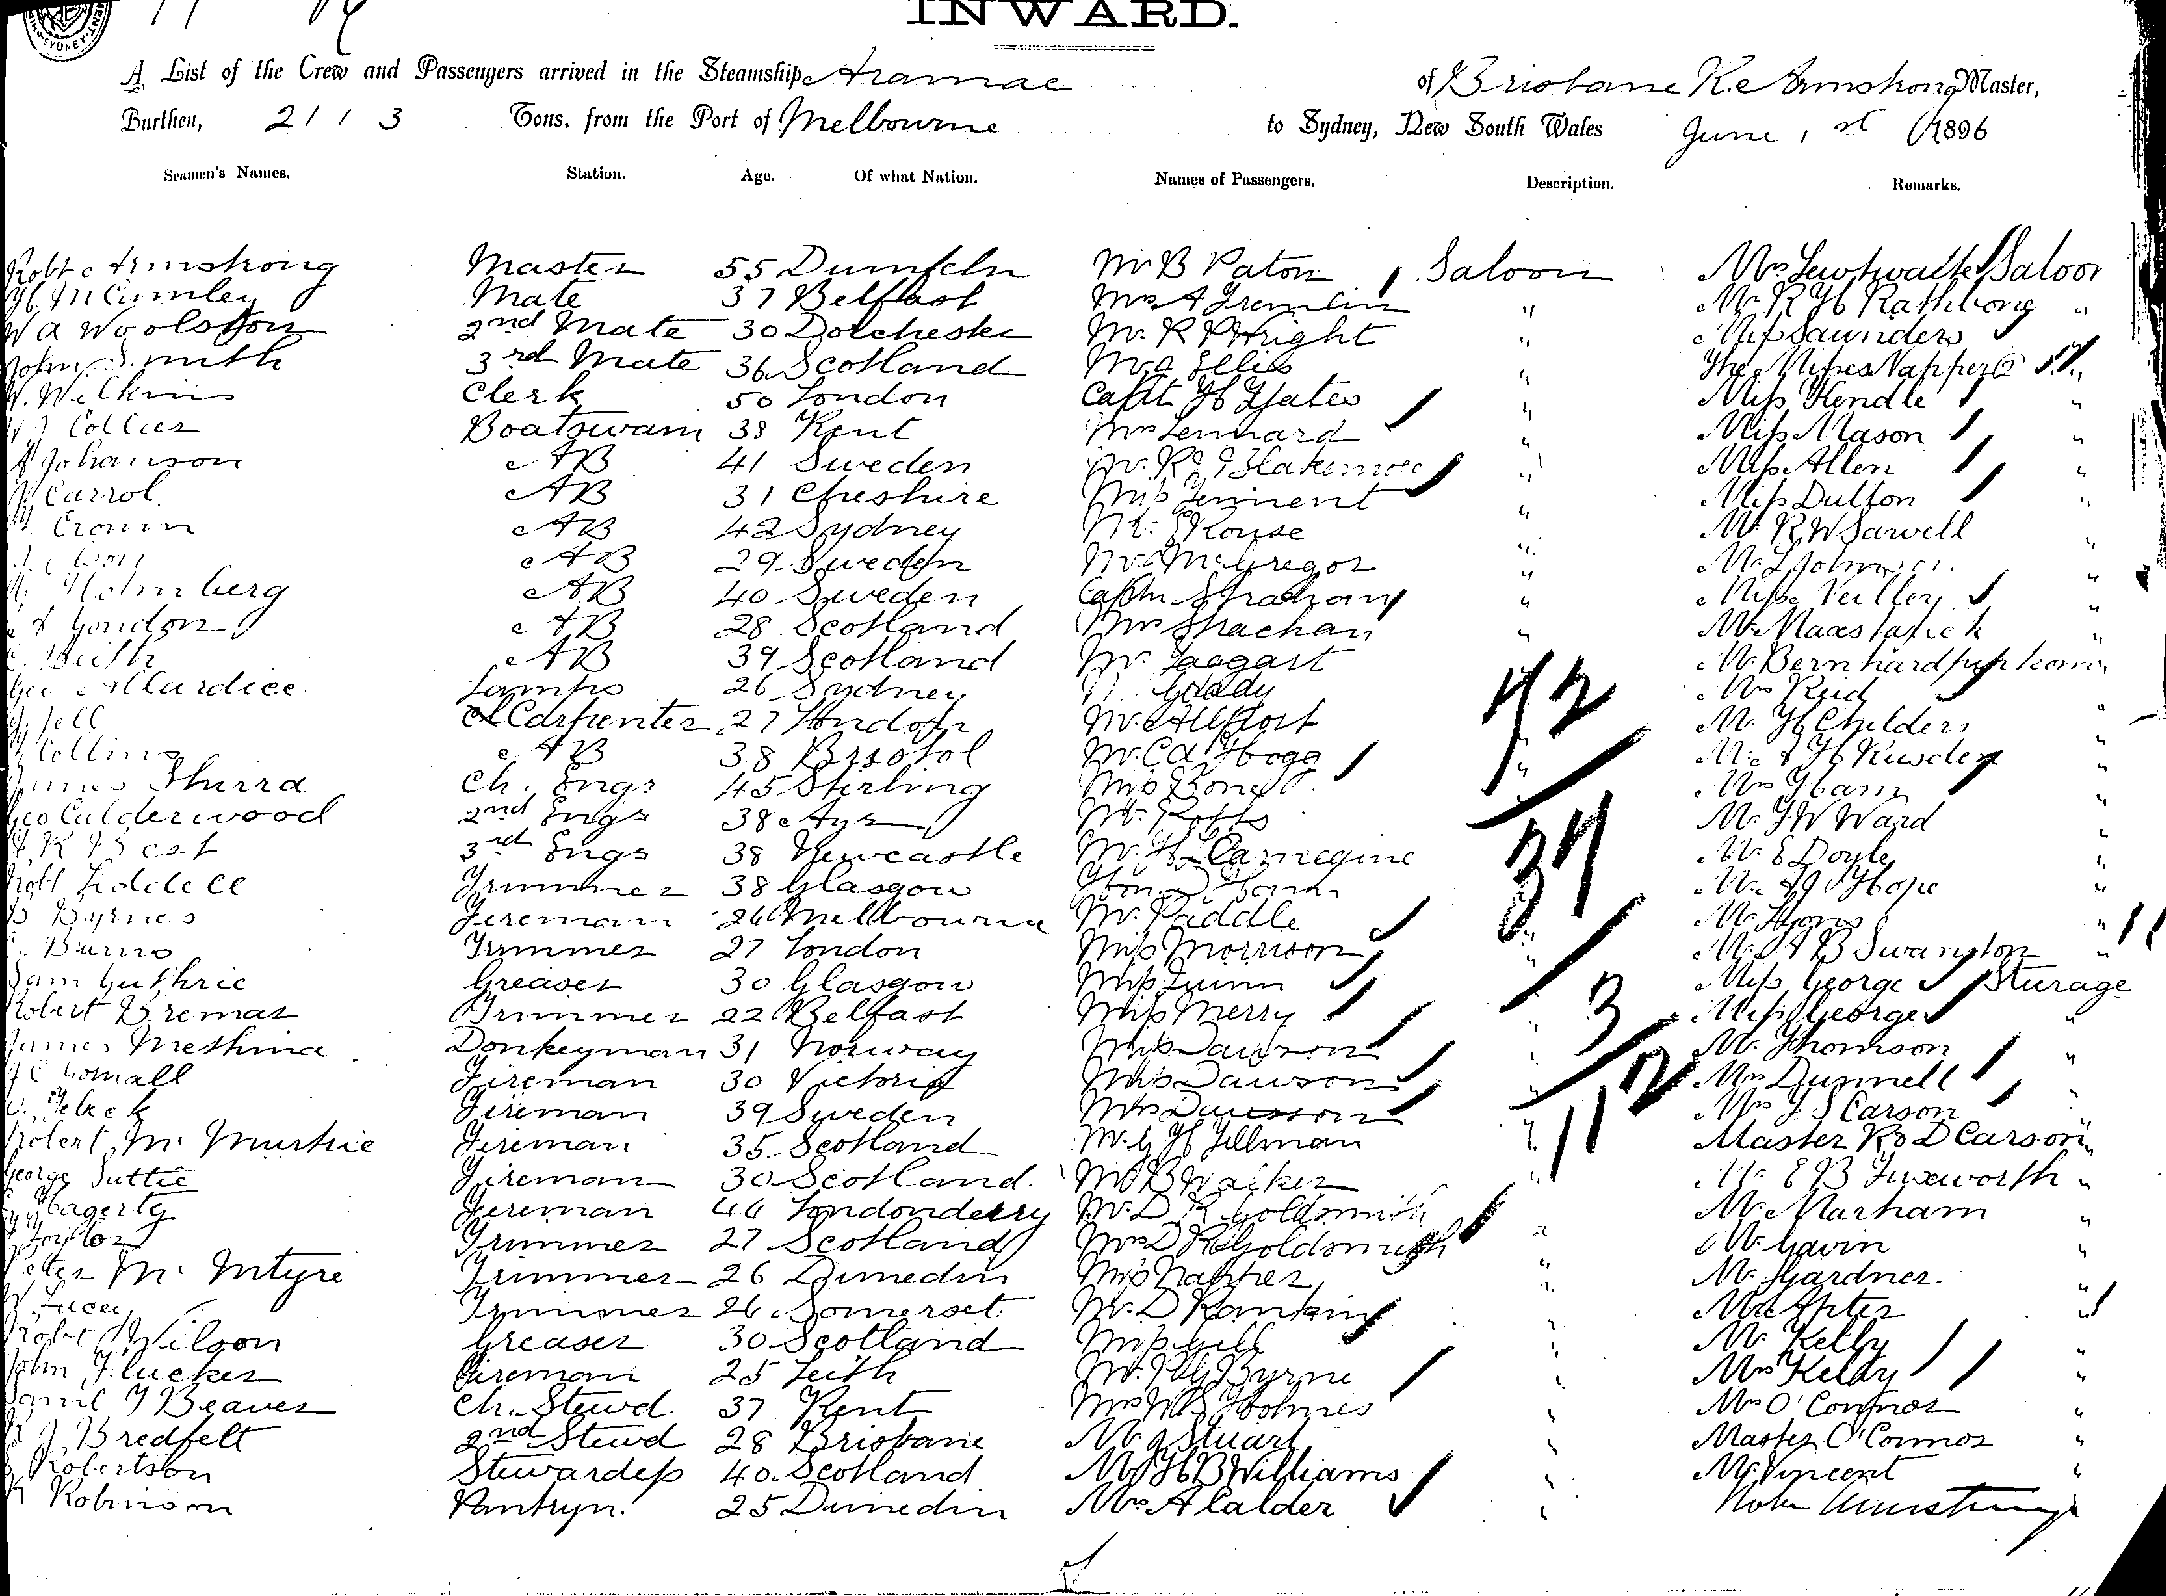 INWARD.
A List of the Crew and Passengers arrived in the Steamship Aramac of Brisbane R. Armstrong Master,
Burthen, 2113 Tons. from the Port of Melbourne to Sydney, New South Wales June 1st 1896
Seamen's Names. Station. Age. Of what Nation. Names of Passengers. Description. Remarks.
Robt Armstrong Master 55 Mr B Paton Saloon Mrs Saloon
Mate 37 Belfast Mrs A Gremlin " Mr R H Rathbone "
W A Woolston 2nd Mate 30 Dorchester Mr R Wright " Miss Saunders
John Smith 3rd Mate 36 Scotland Mr Ellis " The Misses Napper 2 "
W. Wilkins Clerk 50 London Capt H Yates " Miss Hendle "
Collier Boatswain 38 Kent Mrs Lennard " Miss Mason "
Johanson AB 41 Sweden Mr R Blakemore " Miss Allen "
Carrol. AB 31 Cheshire Miss Tennent " Miss Dutton "
Cronin AB 42 Sydney Mr Rouse " Mr R W Sarwell "
AB 29 Sweden Mr McGregor " Mr Johnson "
Holmberg AB 40 Sweden Captn Strachan " Miss "
Gordon AB 28 Scotland Mrs Strachan " Mr "
Beith AB 39 Scotland Mr Taggart Mr Bernhard
Geo Allardice Lamps 26 Sydney Grady 72 Mrs Reid
Jell Carpenter 27 London Mr Allport Mr H Childers "
Collins AB 38 Bristol Mr C A Hogg " Mr H Rusden "
James Shirra Ch. Engr 45 Stirling Miss Bone Mrs Ham "
Geo Calderwood 2nd Engr 38 Ayr Mr Potts Mr J W Ward "
J R Best 3rd Engr 38 Newcastle Mr H Carnegine 37 Mr E Doyle "
Robt Liddell Trimmer 38 Glasgow Mr Hope "
Byrnes Fireman 26 Melbourne Mr Riddle Mr "
Burns Trimmer 27 London Miss Morrison " Mr A B Swanston "
Sam Guthrie Greaser 30 Glasgow Miss Quinn Miss George Sturage
Robert Bremar Trimmer 22 Belfast Miss Merry 3 Miss George "
James Donkeyman 31 Norway Miss Dawson Mr Thomson "
Fireman 30 Victoria Miss Dawson Mrs Dunnell "
Fireman 39 Sweden Mrs Dawson 112 Mrs J S Carson "
Robert Mc Murtrie Fireman 35 Scotland Mr G H Tillman " Master R D Carson "
George Suttie Fireman 30 Scotland. Mr B Walker Mr E B Tuxworth "
Hagerty Fireman 44 Londonderry Mr D R Goldsmith Mr Marham "
Taylor Trimmer 27 Scotland Mrs D R Goldsmith " Mr Gavin "
Peter Mc Intyre Trimmer 26 Dunedin Miss Napper " Mr Gardner. "
W Lucey Trimmer 26 Somerset Mr D Rankin " Mr "
Robt Wilson Greaser 30 Scotland Miss Gill " Mr Kelly "
John Flucker Fireman 25 Leith Mr Byrne " Mrs Kelly "
Daniel J Beaver Ch. Stewd. 37 Kent Mrs Holmes " Mrs O'Connor "
J. Bredfelt 2nd Stewd 28 Brisbane Mr J Stuart " Master O'Connor "
Robertson Stewardess 40 Scotland Mr H B Williams " Mr Vincent "
Robinson Pantryn. 25 Dunedin Mrs A Calder " Robt Armstrong